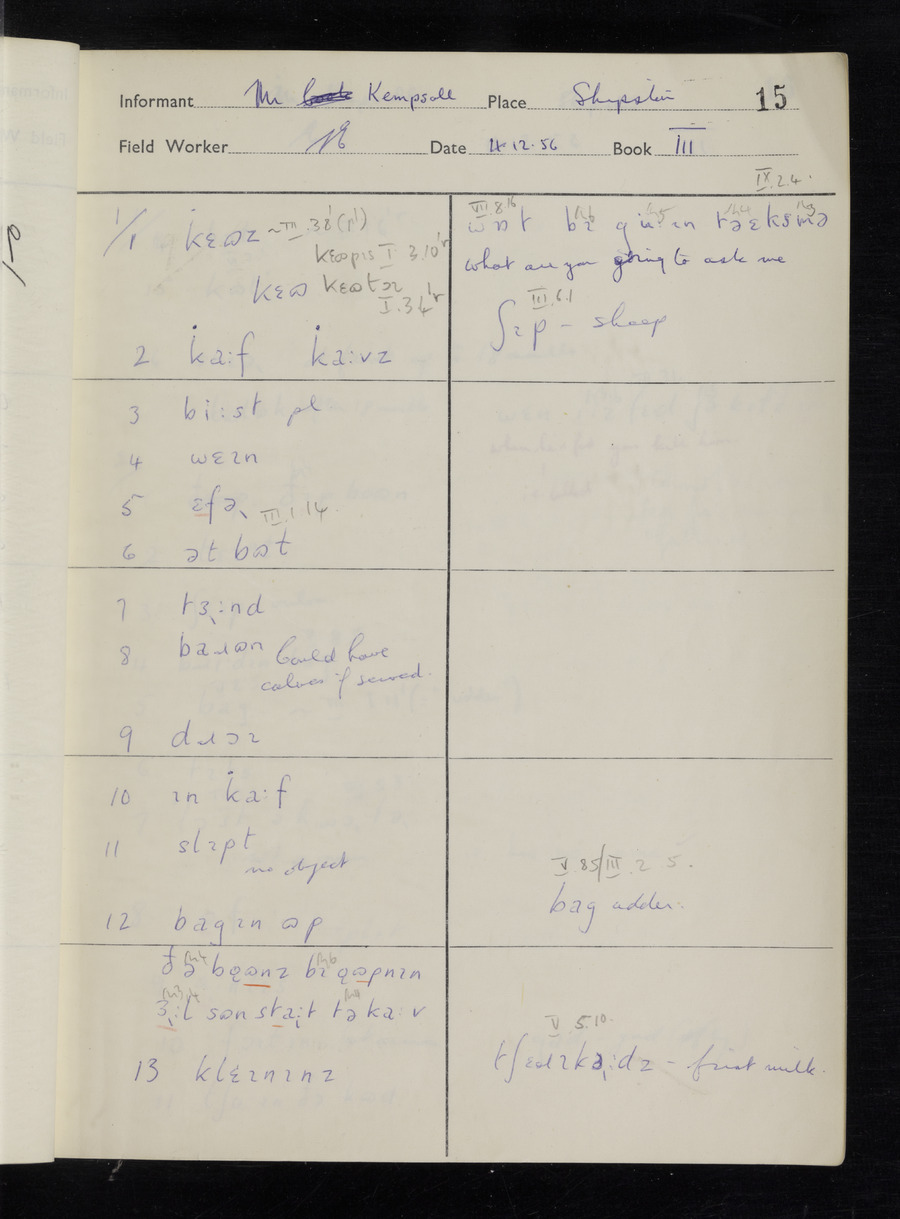 Informant Mr Kempsall Place Shepster 15
Field Worker Date 4.12.56 Book III
IX.2.4.
1/1 k̇ɛɷz ~ III.38(pl)
kɛɷpɪs I 3.10
kɛɷ kɛɷtə
I.3.4
2 k̇a:f k̇a:vz
3 bi:st pl
4 wɛɪn
5 ɛfə III.1.14
6 ət bɷt
7 tɜ:nd
8 baɹən Could have
calves if served.
9 dɹɔɪ
10 ɪn k̇a:f
11 slɪpt
no object
12 bagɪn ɷp
ðə bɷənz bɪ ɷpnɪn
ɜ:l sən sta:t tə ka:v
13 klɛɪnɪnz
VII.8.16
wɒt bɪ guɪn tə ɛksmə
what are you going to ask me
III.6.1
ʃɪp – sheep
V.85/III.2 5.
bag adder.
V 5.10.
– first milk.